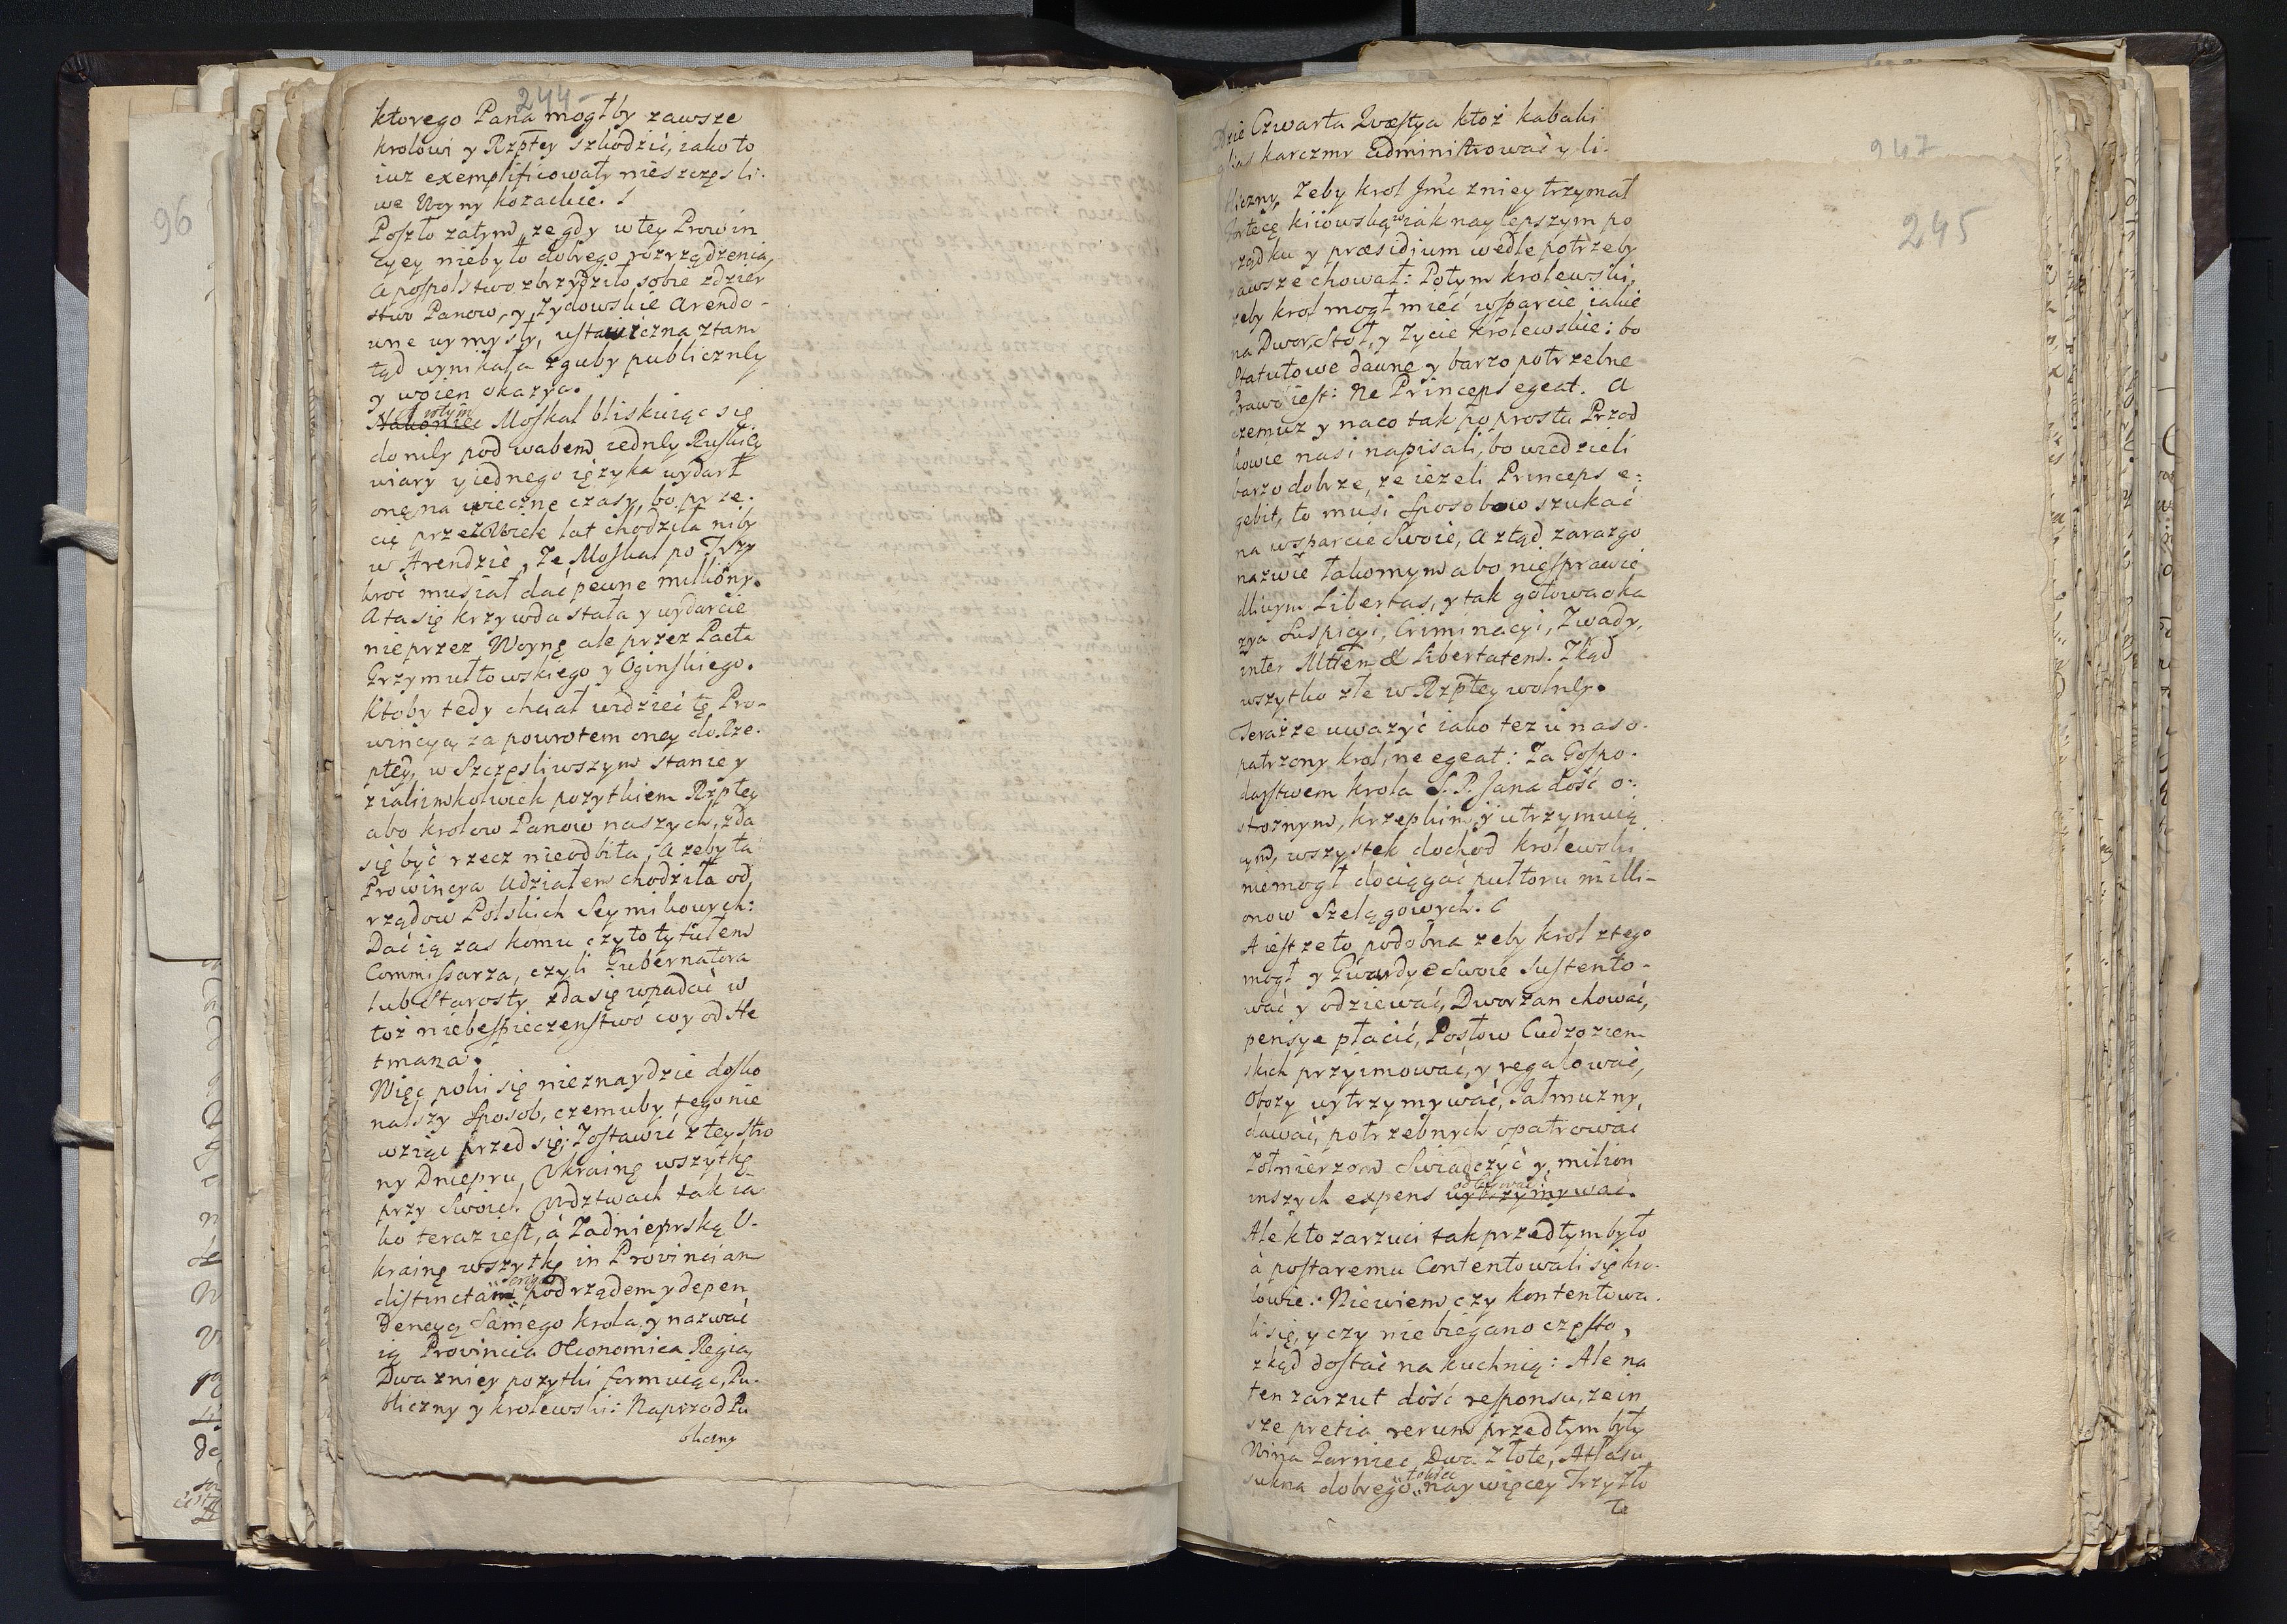 244
ktorego Pana mogłby zawsze
krolowi y Rzptey szkodzić, iako to
iuz exemplificowały nieszczęsli-
we Woyny kozackie.
Poszło zatym, ze gdy w tey Prowin
cyey niebyło dobrego rozrządzenia,
a pospolstwo zbrzydziło sobie zdzier
stwo Panow, y Zydowskie Arendo-
wne wymysły, ustawiczna ztam
tąd wynikała zguby publiczney
y woien okazya.
A wtym
Nakoniec Moskal bliskuiąc się
do niey pod wabem iedney Ruskiey
wiary y iednego ięzyka wydarł
onę na wieczne czasy, bo prze-
cię przez wiele lat chodziła niby
w Arendzie, Ze Moskal po Trzy
kroć musiał dać pewne milliony.
A ta się krzywda stała y wydarcie
nie przez Woynę ale przez Pacta
Grzymułtowskiego y Oginskiego.
Ktoby tedy chciał widzieć tę Pro-
wincyą za powrotem oney do Rze-
ptey, w Szczęsliwszym stanie y
z iakimkolwiek pozytkiem Rzptey
abo krolow Panow naszych, zda
się być rzecz nieodbita, A zeby ta
Prowincya Udziałem chodziła od
rządow Polskich Seymikowych:
Dać ią zas komu czy to tytułem
Commissarza, czyli Gubernatora
lub Starosty zda się wpadać w
toż niebespieczenstwo co y od He
tmana.
Więc poki się nieznaydzie dosko
nalszy Sposob, czemuby tego nie
wziąc przed się; Zostawić z tey stro
ny Dniepru, Ukrainę wszytkę
przy Swoich Wdztwach tak ia
ko teraz iest, à Zadnieprską U-
krainę wszytkę in Provinciam
distinctam pod rządem y depen
dencyą Samego krola, y nazwać
ią Provincia Oeconomica Regia,
Dwa zniey pozytki formuiąc, Pu-
bliczny y krolewski: Naprzod Pu
bliczny
96
Dzie Czwarta Quæstya ktoż kabaki
alias karczmy administrować y li-
947
245
bliczny, Zeby krol Jmć zniey trzymał
Fortecę kiiowską w iak naylepszym po
rządku y præsidium wedle potrzeby
zawsze chował: Potym krolewski,
zeby krol mogł mieć wsparcie iakie
na Dwor, Stoł, y Zycie krolewskie: bo
Statutowe dawne y barzo potrzebne
Prawo iest: Ne Princeps egeat. A
czemuz y naco tak po prostu Przod
kowie nasi napisali, bo wiedzieli
barzo dobrze, ze iezeli Princeps e-
gebit, to musi Sposobow szukać
na wsparcie Swoie, A ztąd zaraz go
nazwie łakomym abo niesprawie
dliwym Libertas, y tak gotowa oka
zya Suspicyi, Criminacyi, Zwady,
inter Mttem & Libertatem. Zkąd
wszytko złe w Rzptey wolney.
Teraz ze uwazyć iako tez u nas o-
patrzony krol, ne egeat: Za Gospo-
darstwem krola S. P. Jana dość o-
stroznym, krzepkim, y utrzymuią
cym, wszystek dochod krolewski
niemogł dociągać pułtoru milli-
onow Szelągowych.
A iest ze to podobna zeby krol ztego
mogł y Gwardye Swoie Sustento-
wać y odziewać, Dworzan chować,
pensye płacić, Posłow Cudzoziem
skich przyimować, y regalować,
Obozy wytrzymywać, Jałmuzny,
dawać, potrzebnych opatrować
Zołnierzom Swiadczyć y milion
odbywać
inszych expens wytrzymywać.
Ale kto zarzuci tak przedtym było
à postaremu Contentowali się kro-
lowie: Niewiem czy kontentowa-
li się, y czy nie biegano często,
zkąd dostać na kuchnią: Ale na
ten zarzut dość responsu, ze in
sze pretia rerum przedtym były
Wina Garniec Dwa Złote, Atłasu
łokiec
sukna dobrego naywięcey Trzy zło
te